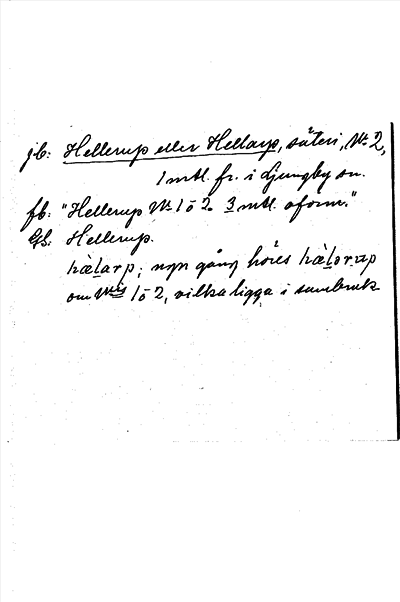 jb: Hellerup eller Hellarp, säteri, No 2,
1 mtl. fr. i Ljungby sn.
fb: "Hellerup No 1 o 2. 3 mtl. oform."
Gs: Hellerup.
hælarp; nyn gång höres hælərup
om No 1 o 2, vilka ligga i sambruk